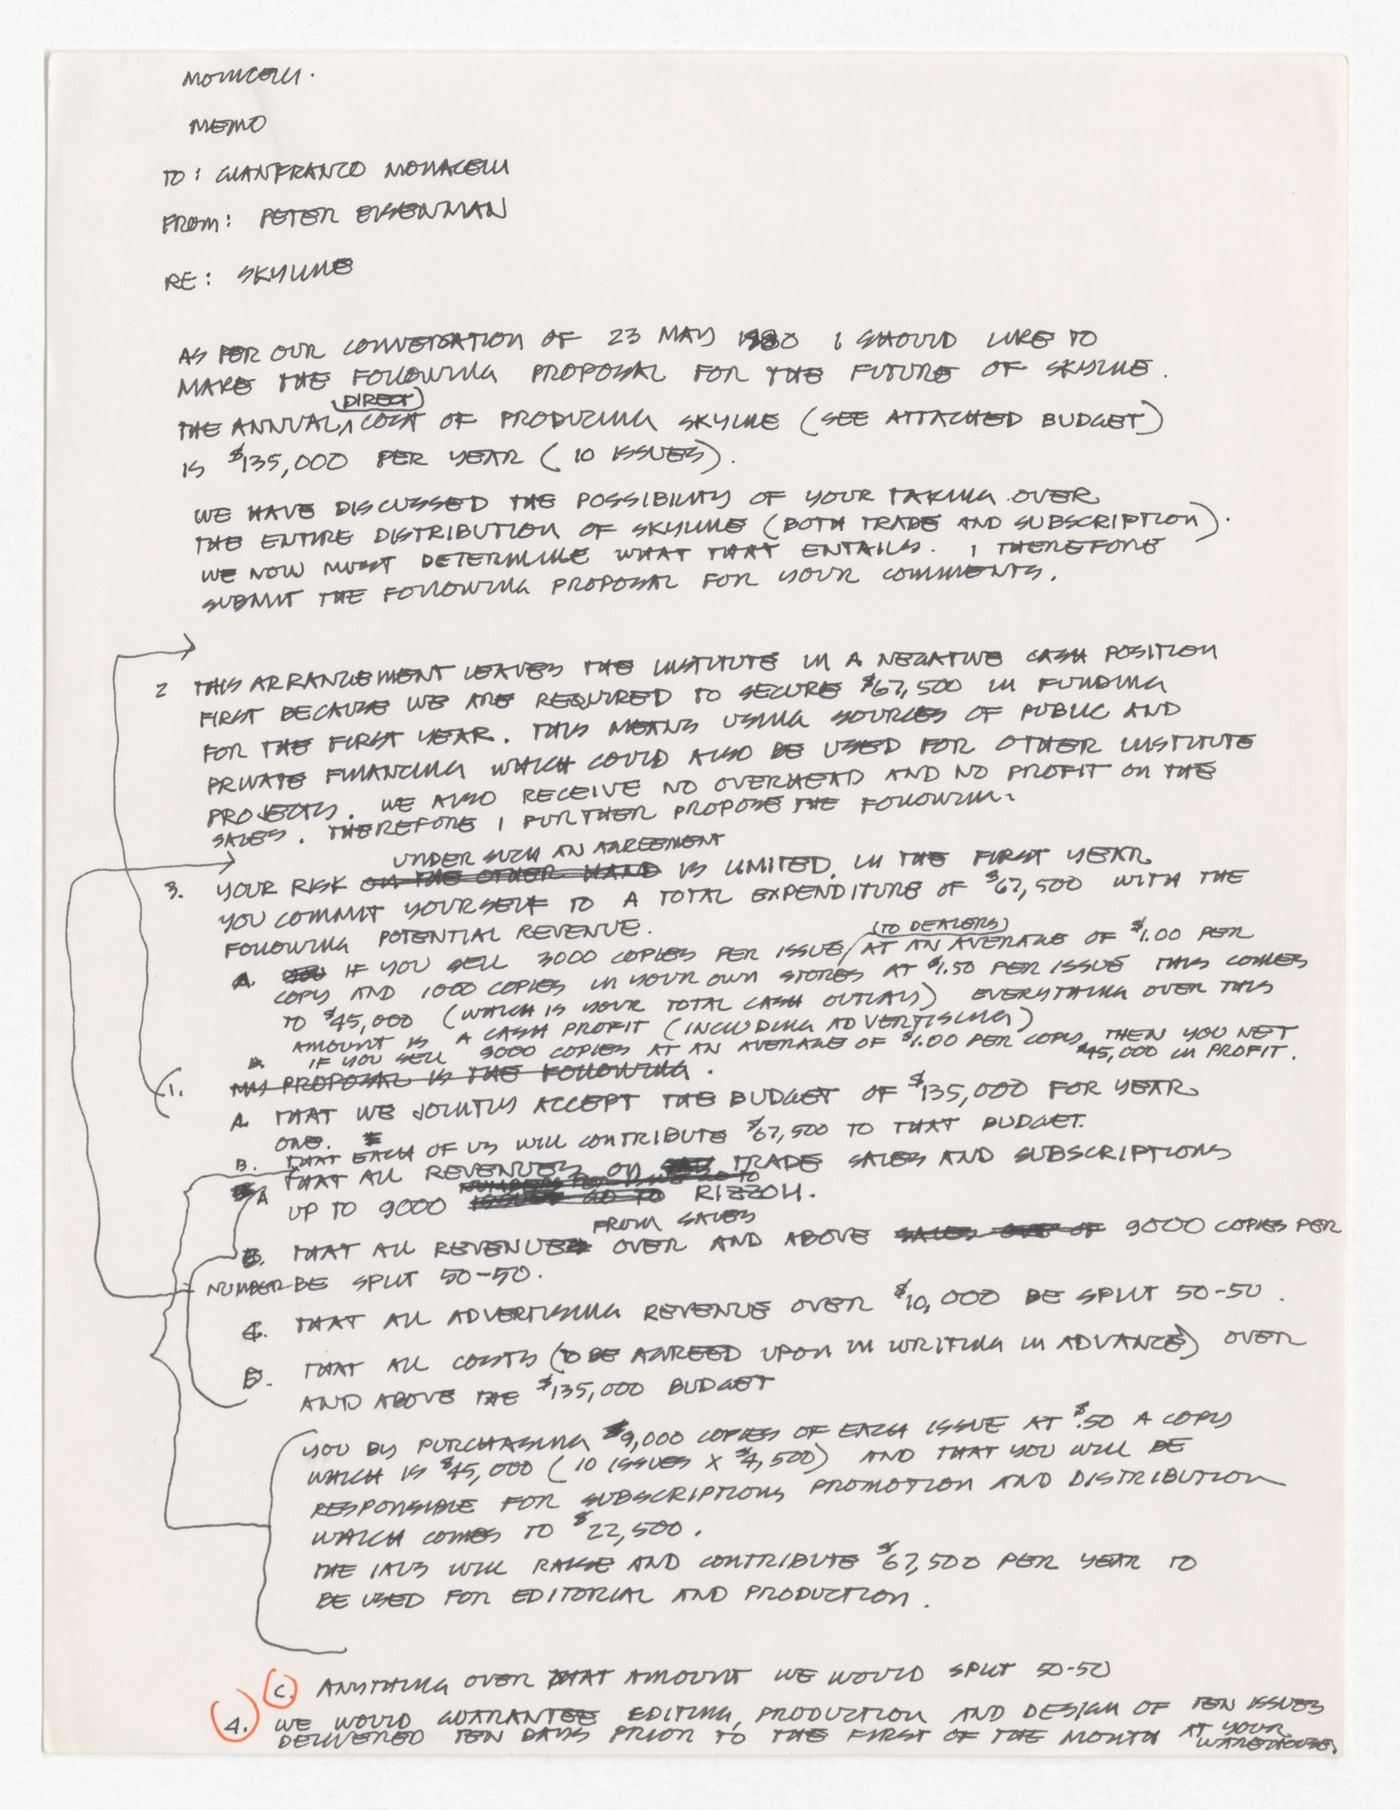 MONACELLI.
MEMO
TO: GIANFRANCO MONACELLI
FROM: PETER EISENMAN
RE: SKYLINE
AS PER OUR CONVERSATION OF 23 MAY 1980 I SHOULD LIKE TO
MAKE THE FOLLOWING PROPOSAL FOR THE FUTURE OF SKYLINE.
DIRECT
THE ANNUAL COST OF PRODUCING SKYLINE (SEE ATTACHED BUDGET)
IS $135,000 PER YEAR (10 ISSUES).
WE HAVE DISCUSSED THE POSSIBILITY OF YOUR TAKING OVER
THE ENTIRE DISTRIBUTION OF SKYLINE (BOTH TRADE AND SUBSCRIPTION).
WE NOW MUST DETERMINE WHAT THAT ENTAILS. I THEREFORE
SUBMIT THE FOLLOWING PROPOSAL FOR YOUR COMMENTS.
2 THIS ARRANGEMENT LEAVES THE INSTITUTE IN A NEGATIVE CASH POSITION
FIRST BECAUSE WE ARE REQUIRED TO SECURE $67,500 IN FUNDING
FOR THE FIRST YEAR. THIS MEANS USING SOURCES OF PUBLIC AND
PRIVATE FINANCING WHICH COULD ALSO BE USED FOR OTHER INSTITUTE
PROJECTS. WE ALSO RECEIVE NO OVERHEAD AND NO PROFIT ON THE
SALES. THEREFORE I FURTHER PROPOSE THE FOLLOWING
UNDER SUCH AN AGREEMENT
3. YOUR RISK ON THE OTHER HAND IS LIMITED. IN THE FIRST YEAR
YOU COMMIT YOURSELF TO A TOTAL EXPENDITURE OF $67,500 WITH THE
FOLLOWING POTENTIAL REVENUE.
(TO DEALERS)
A. IF YOU SELL 3000 COPIES PER ISSUE AT AN AVERAGE OF $1.00 PER
COPY AND 1000 COPIES IN YOUR OWN STORES AT $1.50 PER ISSUE THIS COMES
TO $45,000 (WHICH IS YOUR TOTAL CASH OUTLAY) EVERYTHING OVER THIS
AMOUNT IS A CASH PROFIT (INCLUDING ADVERTISING)
B. IF YOU SELL 9000 COPIES AT AN AVERAGE OF $1.00 PER COPY, THEN YOU NET
$45,000 IN PROFIT.
1. MY PROPOSAL IS THE FOLLOWING.
A. THAT WE JOINTLY ACCEPT THE BUDGET OF $135,000 FOR YEAR
ONE.
B. THAT EACH OF US WILL CONTRIBUTE $67,500 TO THAT BUDGET.
A THAT ALL REVENUES ON TRADE SALES AND SUBSCRIPTIONS
UP TO 9000 ISSUES GO TO RIZZOLI.
FROM SALES
B. THAT ALL REVENUES OVER AND ABOVE SALES OVER OF 9000 COPIES PER
NUMBER BE SPLIT 50-50.
C. THAT ALL ADVERTISING REVENUE OVER $10,000 BE SPLIT 50-50.
D. THAT ALL COSTS (TO BE AGREED UPON IN WRITING IN ADVANCE) OVER
AND ABOVE THE $135,000 BUDGET
YOU BY PURCHASING 9,000 COPIES OF EACH ISSUE AT $.50 A COPY
WHICH IS $45,000 (10 ISSUES X $4,500) AND THAT YOU WILL BE
RESPONSIBLE FOR SUBSCRIPTIONS PROMOTION AND DISTRIBUTION
WHICH COMES TO $22,500.
THE IAUS WILL RAISE AND CONTRIBUTE $67,500 PER YEAR TO
BE USED FOR EDITORIAL AND PRODUCTION.
C. ANYTHING OVER THAT AMOUNT WE WOULD SPLIT 50-50
4. WE WOULD GUARANTEE EDITING, PRODUCTION AND DESIGN OF TEN ISSUES
DELIVERED TEN DAYS PRIOR TO THE FIRST OF THE MONTH AT YOUR
WAREHOUSE.